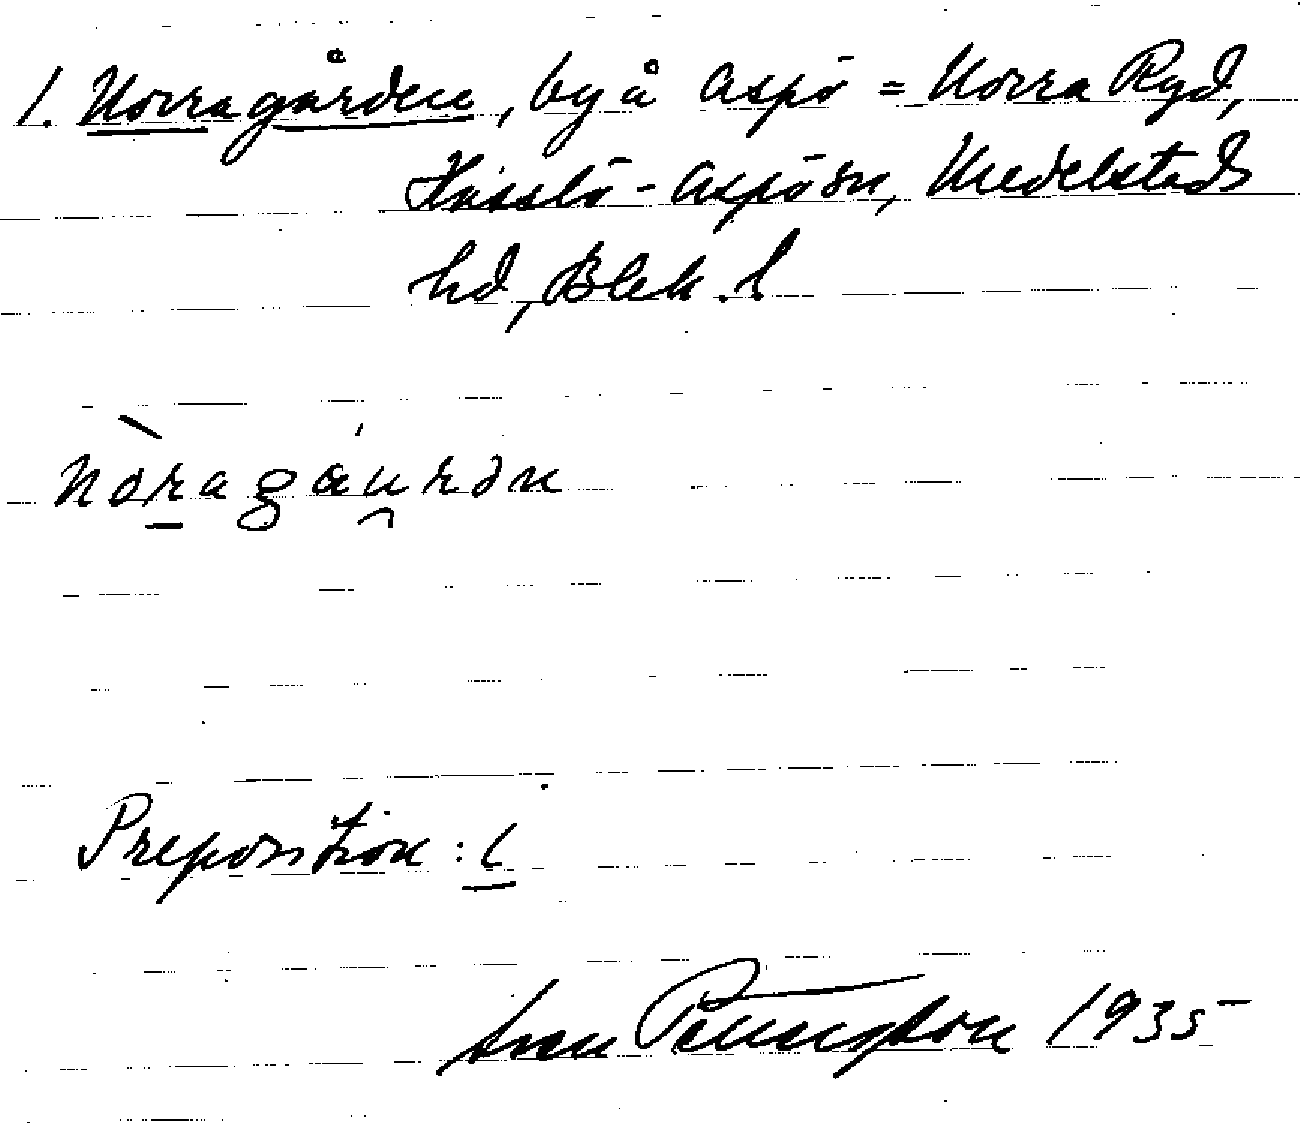 1. Norragården, by å Aspö = Norra Ryd,
Hässlö-Aspö sn, Medelstads
hd, Blek. l
nòragáurən
Preposition: i
1935